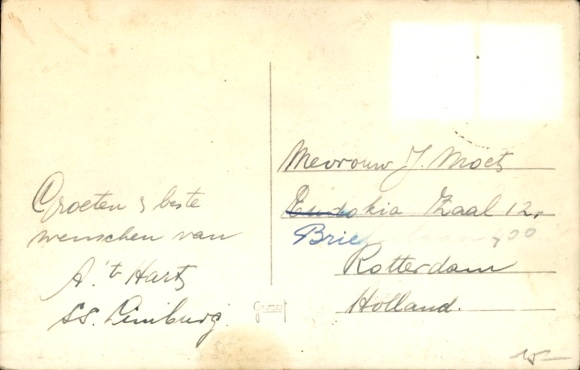 Groeten & beste
wenschen van
A. 't Hart
SS. Limburg.
Gevaert
Mevrouw J. Moet
Eudokia Zaal 12,
Brie 400
Rotterdam
Holland.
15-